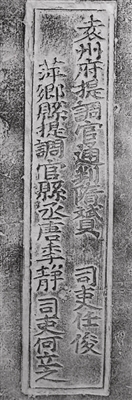 袁州府提調官通判隋贇 司吏任俊
萍鄉縣提調官縣丞唐季靜 司吏何立之